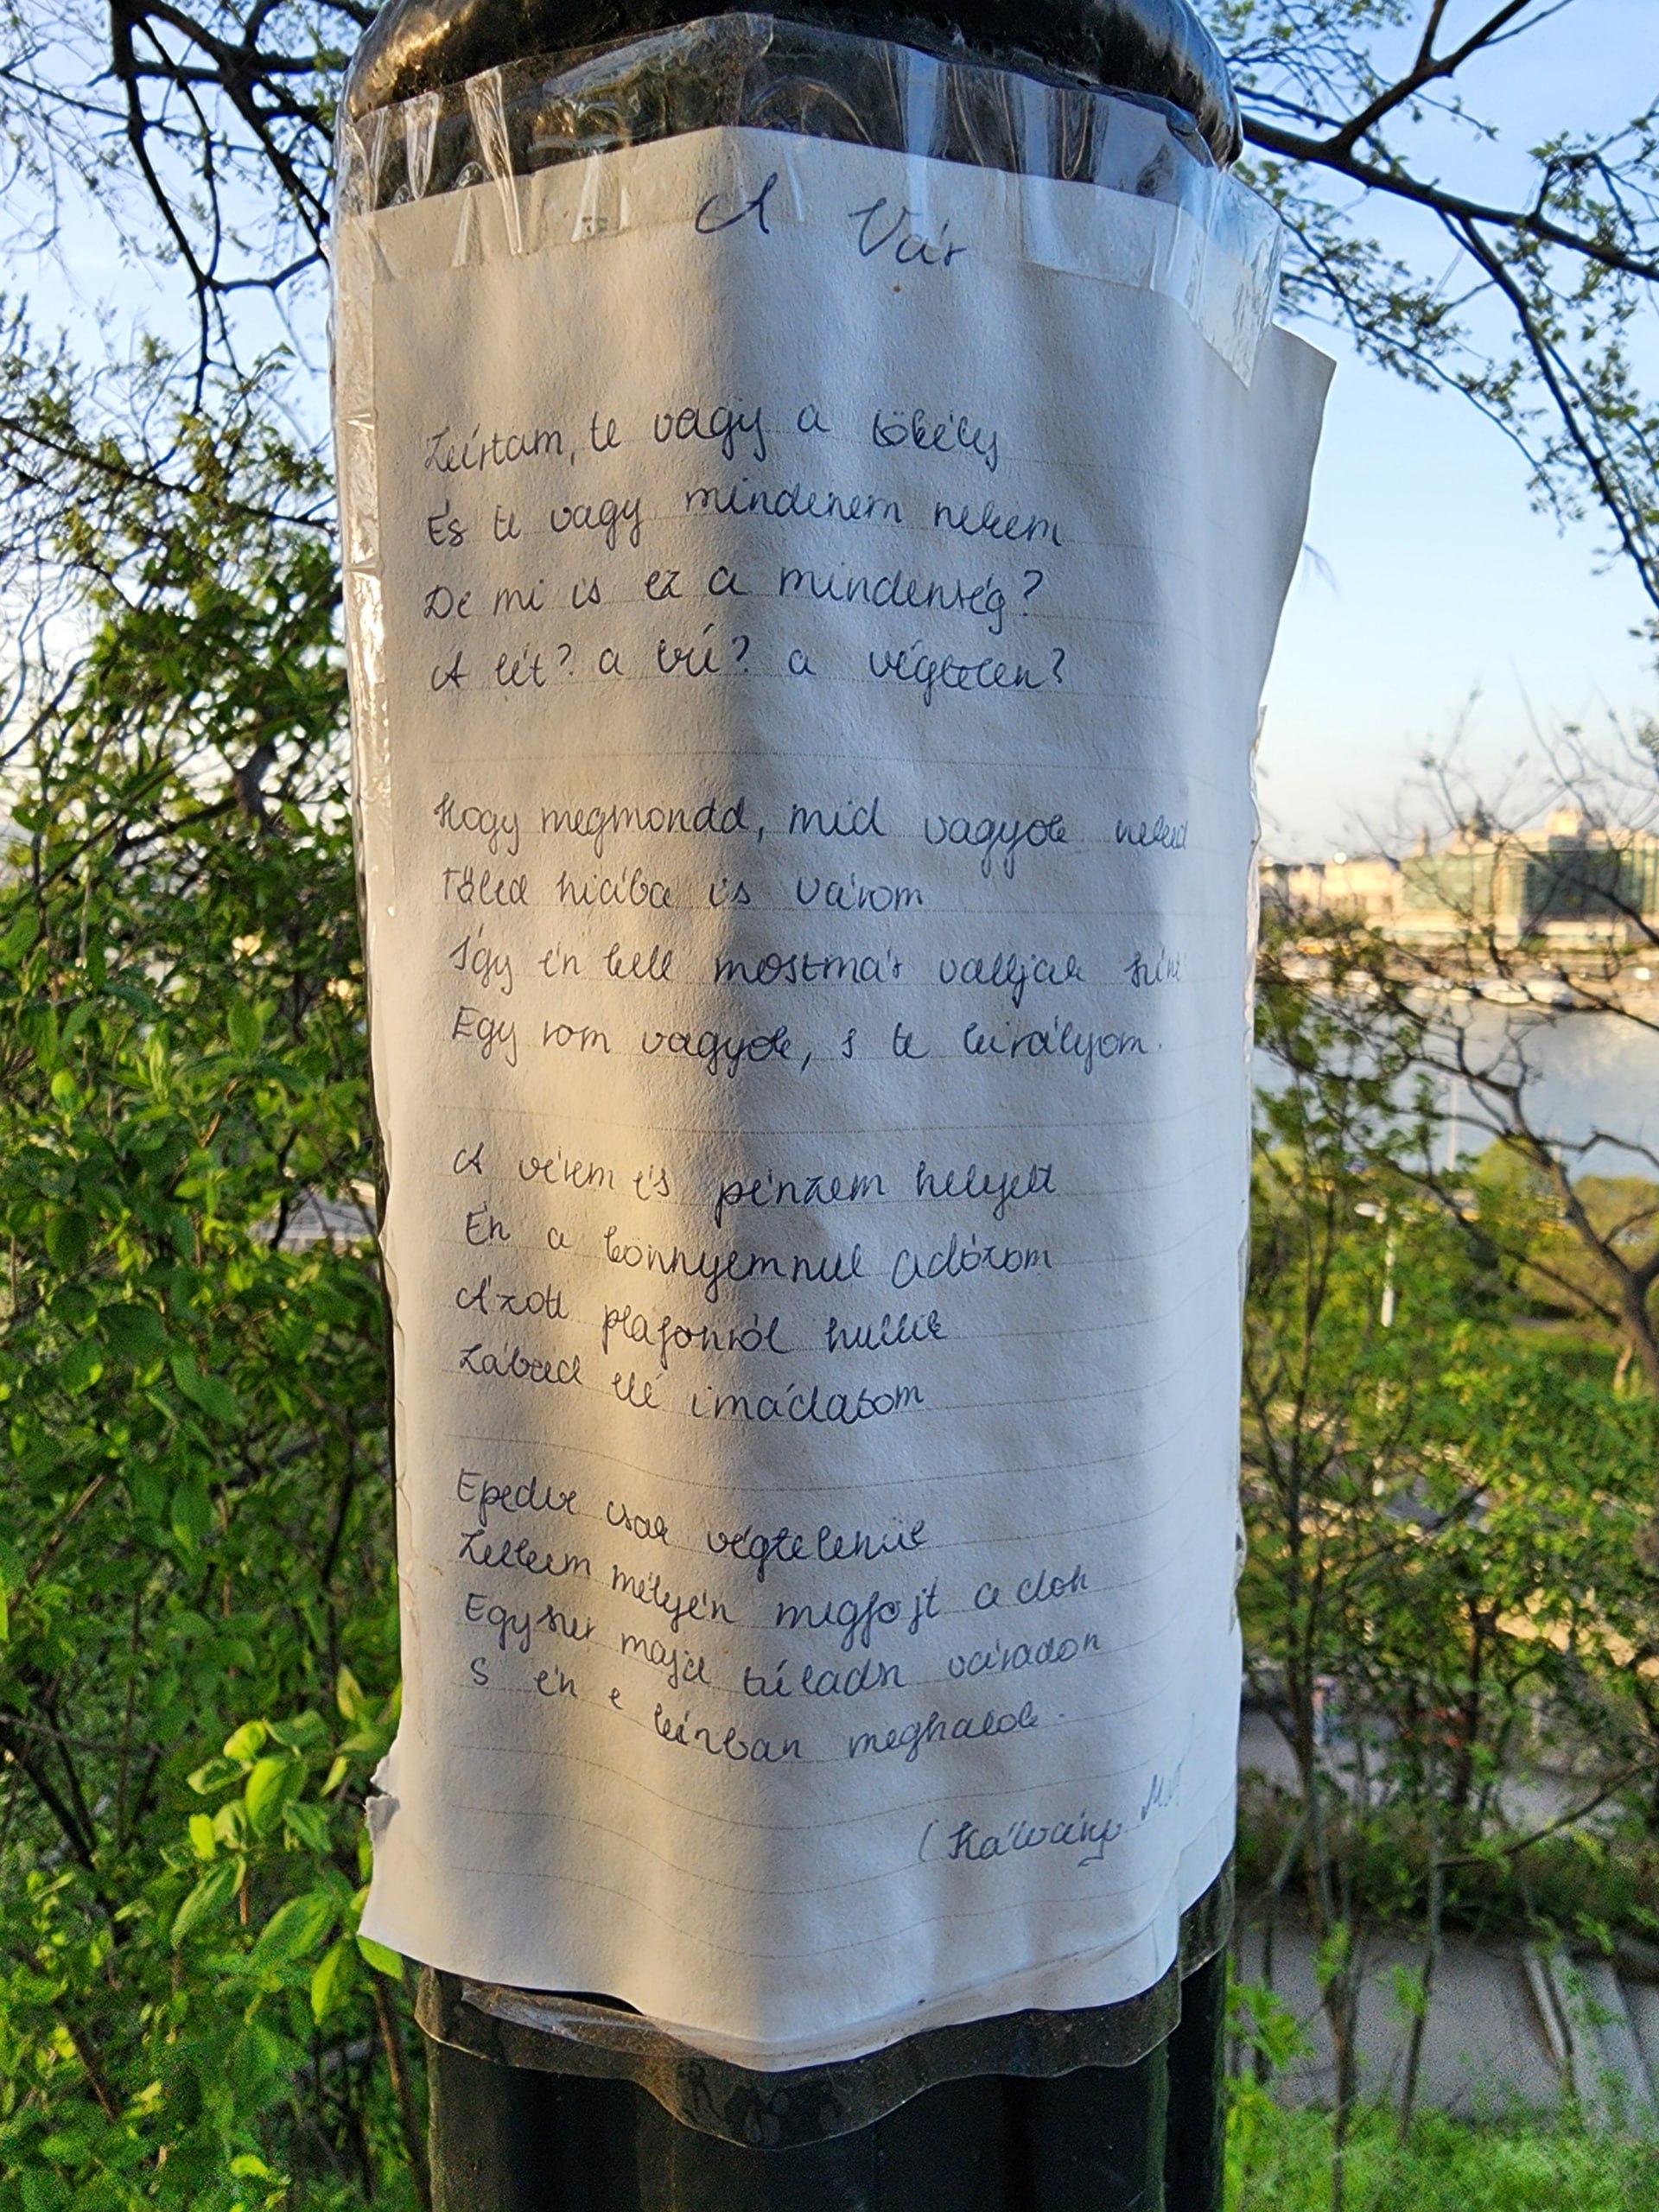 A Vár
Leírtam, te vagy a tökély
És te vagy mindenem nekem
De mi is ez a mindenség?
A lét? a tű? a végtelen?
Hogy megmondd, mid vagyok neked
Tőled hiába is várom
Így én kell mostmár valljak színt
Egy rom vagyok, s te királyom.
A vérem és pénzem helyett
Én a könnyemmel adózom
Ázott plafonról hullik
Lábaid elé imádatom
Epedve csak végtelenül
Lelkem mélyén megfojt a doh
Egyszer majd túladsz váradon
S én e kínban meghalok.
(Kálváný